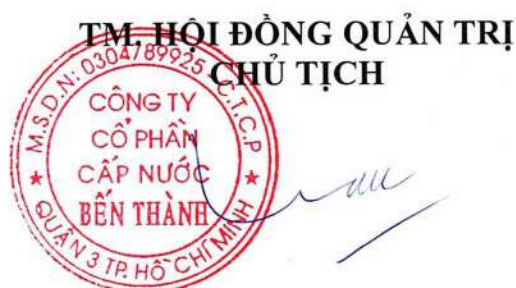 TM. HỘI ĐỒNG QUẢN TRỊ
CHỦ TỊCH
M.S.D.N: 0304789925 C.T.C.P
CÔNG TY
CỔ PHẦN
CẤP NƯỚC
BẾN THÀNH
QUẬN 3 TP. HỒ CHÍ MINH